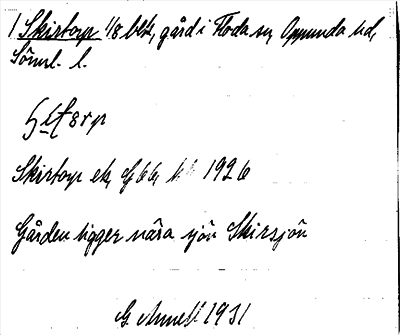 1 Skirtorp 1/8 blk, gård i Floda sn, Oppunda hd,
Söml. l.
Skirtorp ek, 1926
Gården ligger nära sjön Skirsjön
G. Annell 1931